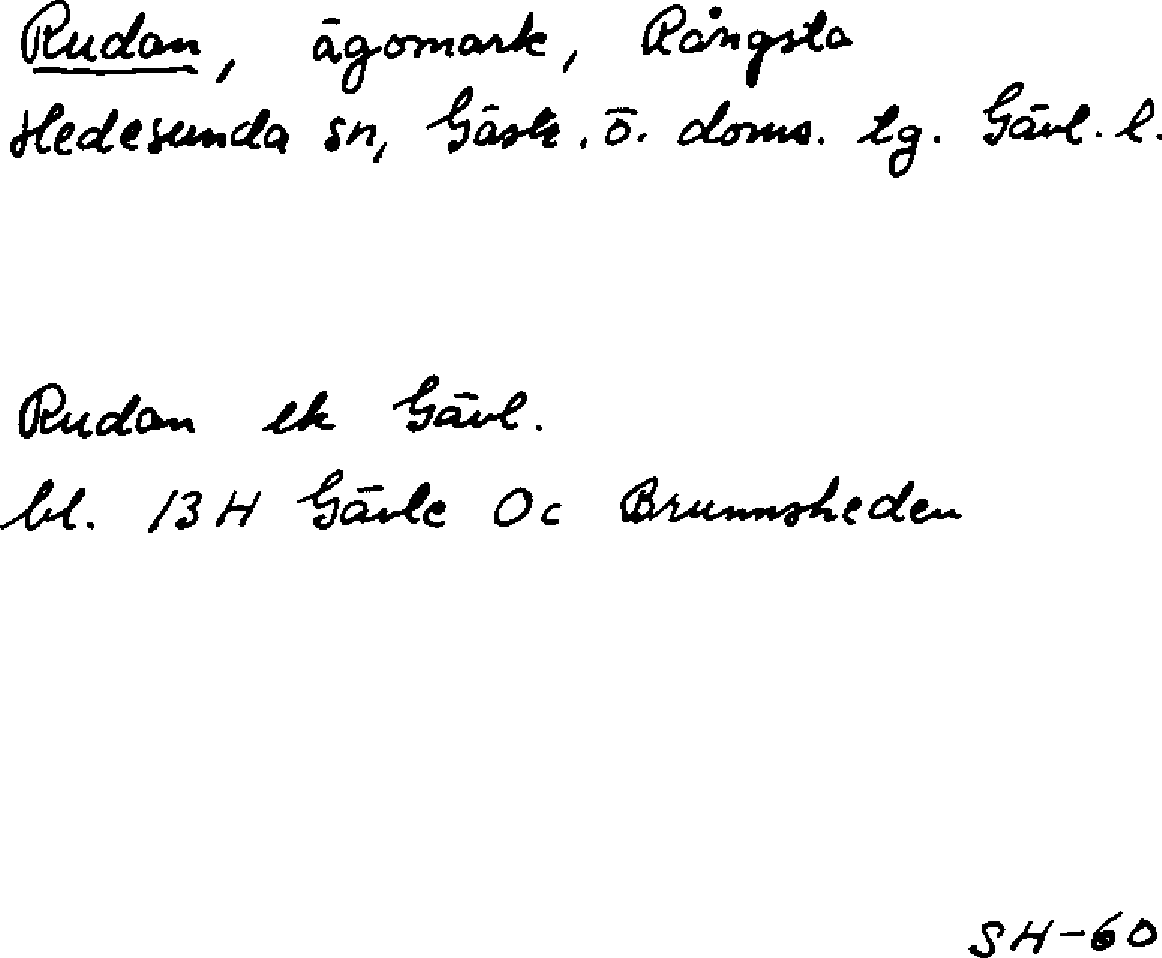 Rudan, ägomark, Rångsta
Hedesunda sn, Gästr. ö. doms. tg. Gävl. l.
Rudan ek Gävl.
bl. 13H Gävle 0c Brunnsheden
SH-60